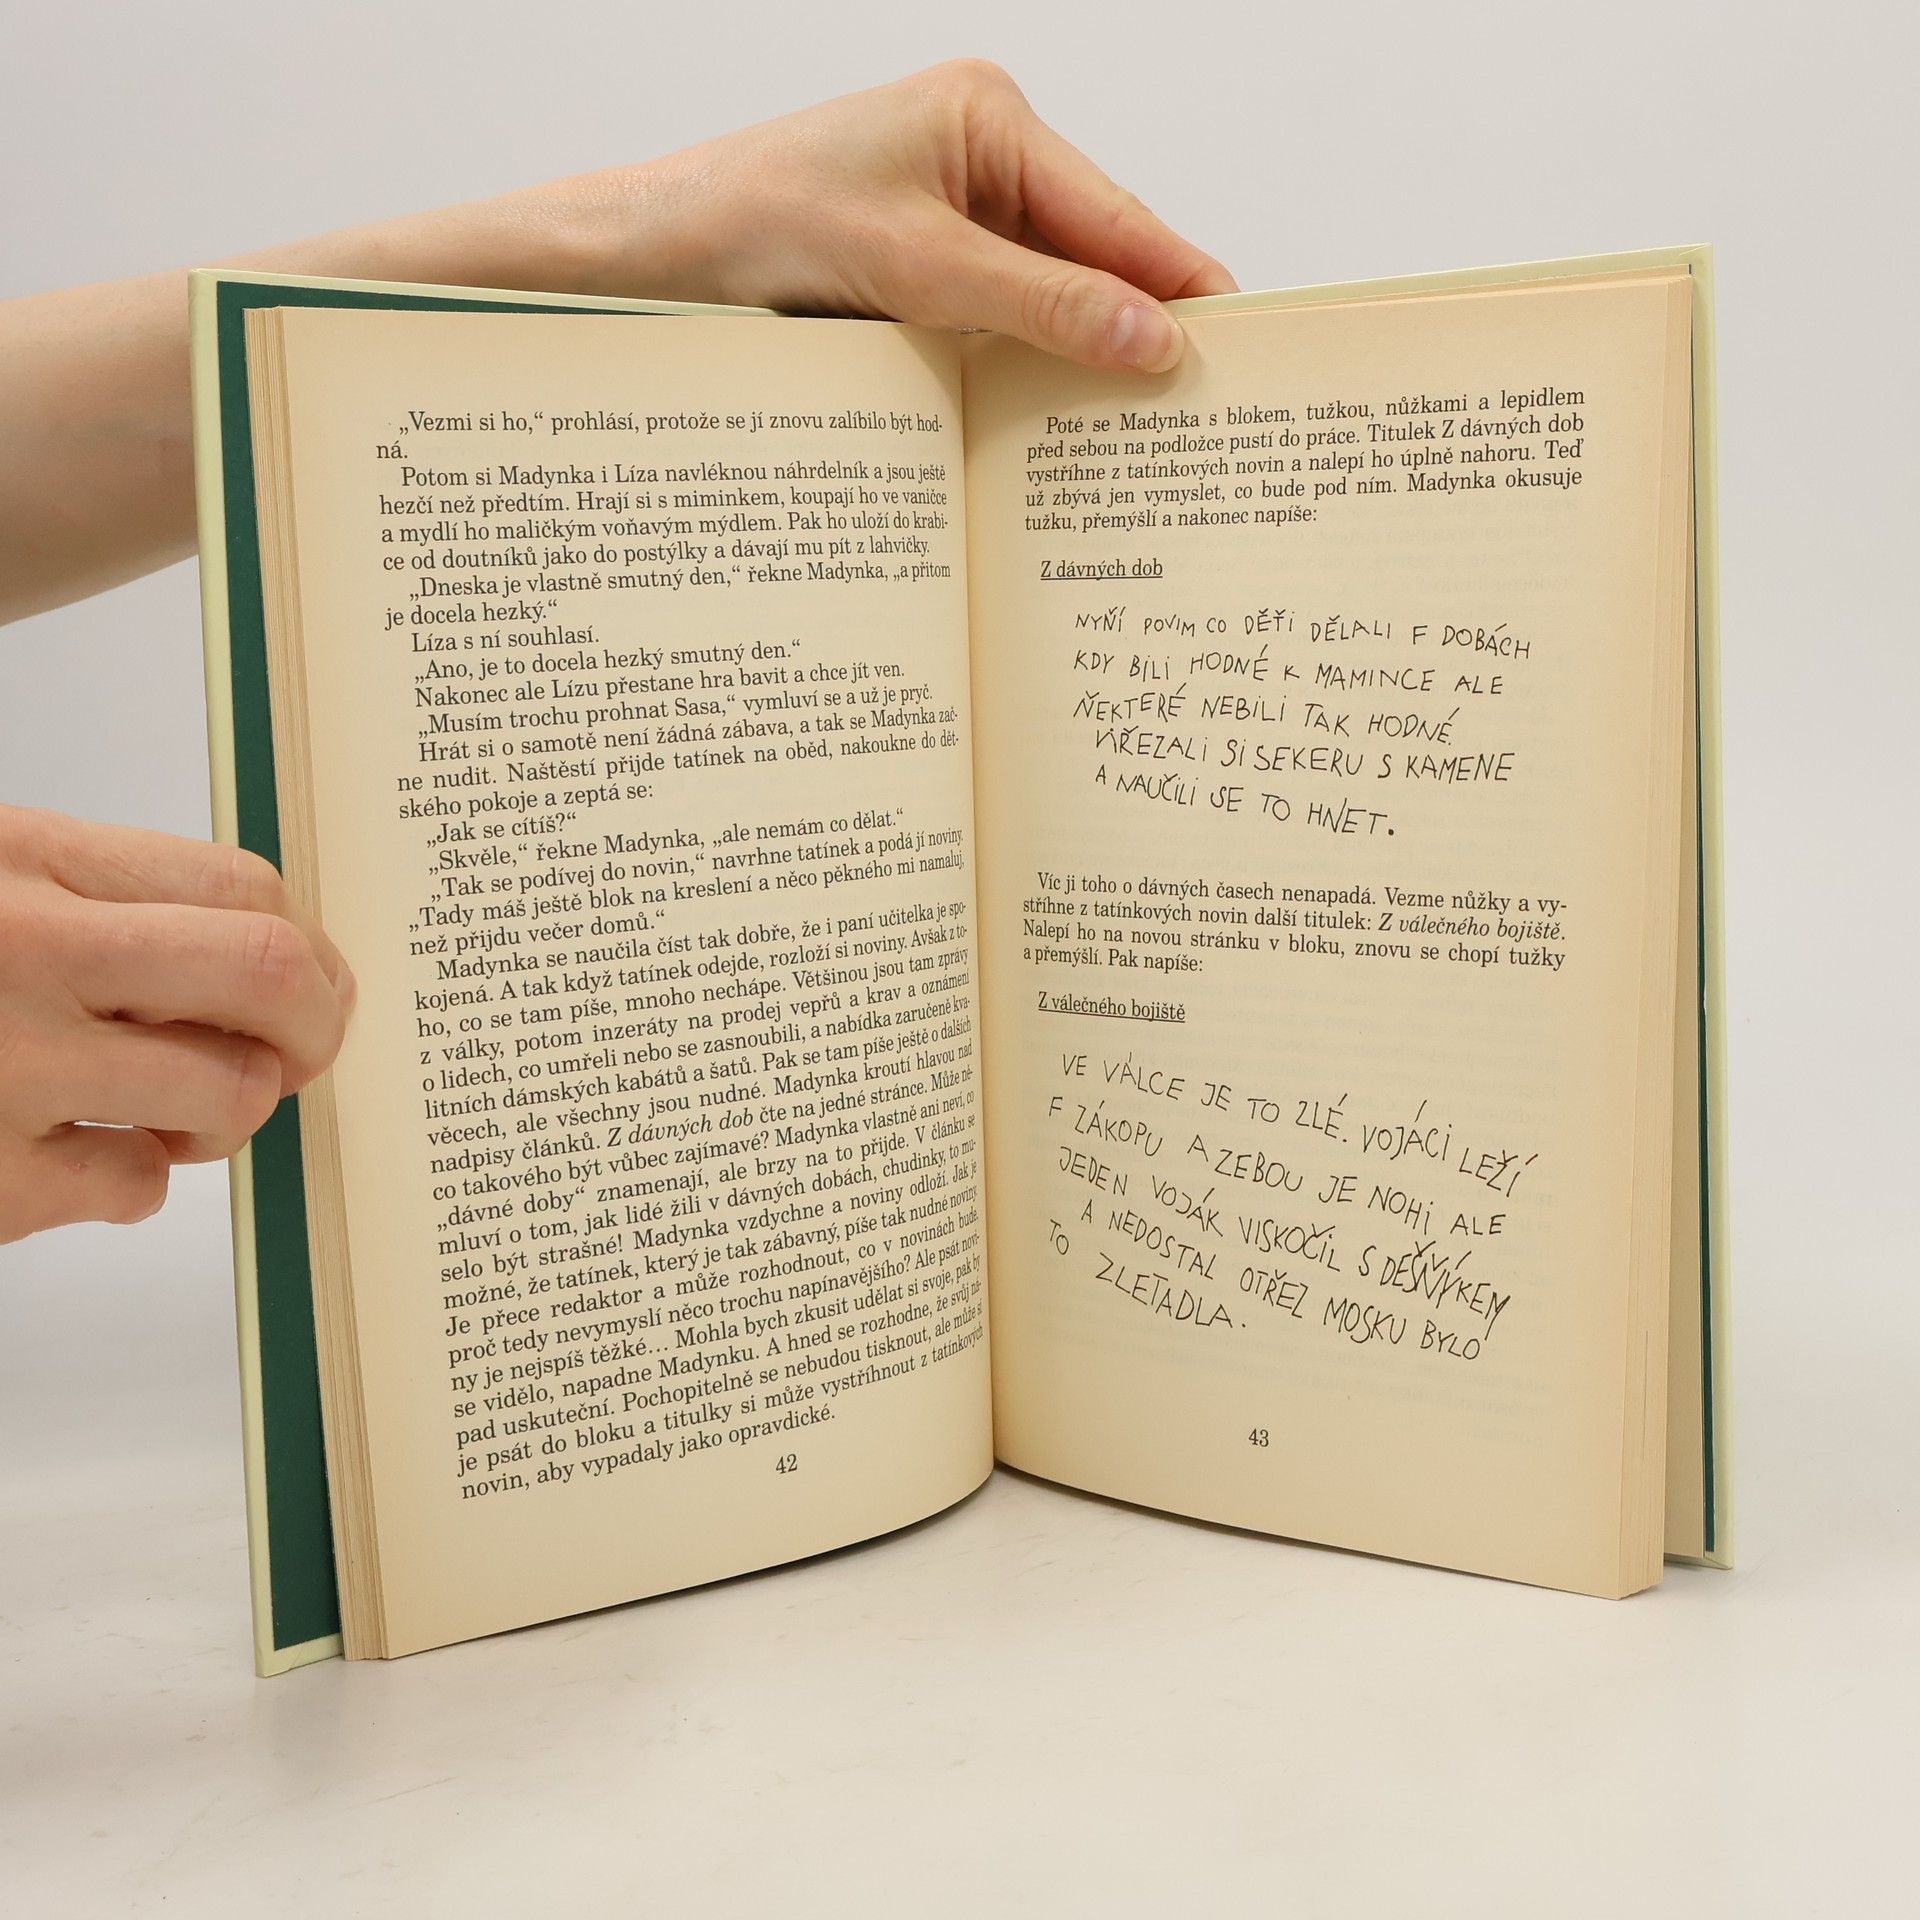 „Vezmi si ho,“ prohlásí, protože se jí znovu zalíbilo být hod-
ná.
Potom si Madynka i Líza navléknou náhrdelník a jsou ještě
hezčí než předtím. Hrají si s miminkem, koupají ho ve vaničce
a mydlí ho maličkým voňavým mýdlem. Pak ho uloží do krabi-
ce od doutníků jako do postýlky a dávají mu pít z lahvičky.
„Dneska je vlastně smutný den,“ řekne Madynka, „a přitom
je docela hezký.“
Líza s ní souhlasí.
„Ano, je to docela hezký smutný den.“
Nakonec ale Lízu přestane hra bavit a chce jít ven.
„Musím trochu prohnat Sasa,“ vymluví se a už je pryč.
Hrát si o samotě není žádná zábava, a tak se Madynka zač-
ne nudit. Naštěstí přijde tatínek na oběd, nakoukne do dět-
ského pokoje a zeptá se:
„Jak se cítíš?“
„Skvěle,“ řekne Madynka, „ale nemám co dělat.“
„Tak se podívej do novin,“ navrhne tatínek a podá jí noviny.
„Tady máš ještě blok na kreslení a něco pěkného mi namaluj,
než přijdu večer domů.“
Madynka se naučila číst tak dobře, že i paní učitelka je spo-
kojená. A tak když tatínek odejde, rozloží si noviny. Avšak z to-
ho, co se tam píše, mnoho nechápe. Většinou jsou tam zprávy
z války, potom inzeráty na prodej vepřů a krav a oznámení
o lidech, co umřeli nebo se zasnoubili, a nabídka zaručeně kva-
litních dámských kabátů a šatů. Pak se tam píše ještě o dalších
věcech, ale všechny jsou nudné. Madynka kroutí hlavou nad
nadpisy článků. Z dávných dob čte na jedné stránce. Může ně-
co takového být vůbec zajímavé? Madynka vlastně ani neví, co
„dávné doby“ znamenají, ale brzy na to přijde. V článku se
mluví o tom, jak lidé žili v dávných dobách, chudinky, to mu-
selo být strašné! Madynka vzdychne a noviny odloží. Jak je
možné, že tatínek, který je tak zábavný, píše tak nudné noviny.
Je přece redaktor a může rozhodnout, co v novinách bude,
proč tedy nevymyslí něco trochu napínavějšího? Ale psát novi-
ny je nejspíš těžké… Mohla bych zkusit udělat si svoje, pak by
se vidělo, napadne Madynku. A hned se rozhodne, že svůj ná-
pad uskuteční. Pochopitelně se nebudou tisknout, ale může si
je psát do bloku a titulky si může vystříhnout z tatínkových
novin, aby vypadaly jako opravdické.
42
Poté se Madynka s blokem, tužkou, nůžkami a lepidlem
před sebou na podložce pustí do práce. Titulek Z dávných dob
vystříhne z tatínkových novin a nalepí ho úplně nahoru. Teď
už zbývá jen vymyslet, co bude pod ním. Madynka okusuje
tužku, přemýšlí a nakonec napíše:
Z dávných dob
NYŇÍ POVIM CO DĚŤI DĚLALI F DOBÁCH
KDY BILI HODNÉ K MAMINCE ALE
ŇEKTERÉ NEBILI TAK HODNÉ.
VIŘEZALI SI SEKERU S KAMENE
A NAUČILI SE TO HNET.
Víc ji toho o dávných časech nenapadá. Vezme nůžky a vy-
stříhne z tatínkových novin další titulek: Z válečného bojiště.
Nalepí ho na novou stránku v bloku, znovu se chopí tužky
a přemýšlí. Pak napíše:
Z válečného bojiště
VE VÁLCE JE TO ZLÉ. VOJÁCI LEŽÍ
F ZÁKOPU A ZEBOU JE NOHI ALE
JEDEN VOJÁK VISKOČIL S DEŠŇÝKEM
A NEDOSTAL OTŘEZ MOSKU BYLO
TO ZLEŤADLA.
43